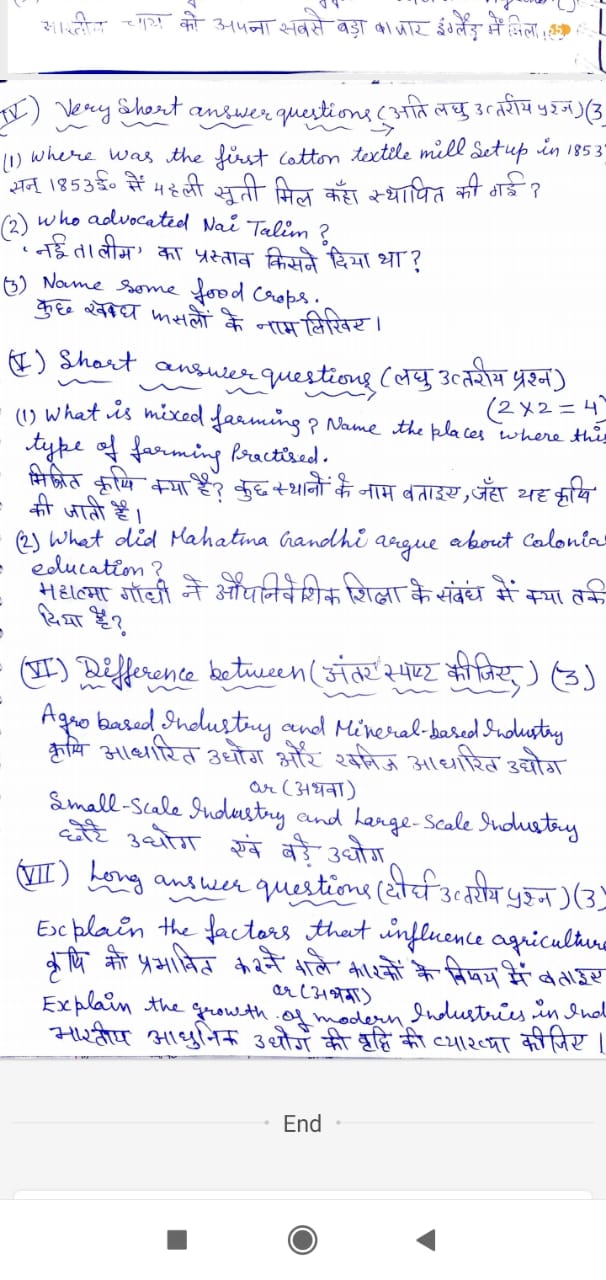 भारतीय चाय को अपना सबसे बड़ा बाजार इंग्लैंड में मिला।
IV) Very Short answer questions (अति लघु उत्तरीय प्रश्न) (3
(1) Where was the first Cotton textile mill Setup in 1853
सन् 1853ई० में पहली सूती मिल कहाँ स्थापित की गई ?
(2) Who advocated Nai Talim ?
'नई तालीम' का प्रस्ताव किसने दिया था ?
(3) Name some food Crops.
कुछ खाद्य फसलों के नाम लिखिए।
(V) Short answer questions (लघु उत्तरीय प्रश्न)
(2 x 2 = 4)
(1) What is mixed farming ? Name the places where this
type of farming Practised.
मिश्रित कृषि क्या है? कुछ स्थानों के नाम बताइए, जहाँ यह कृषि
की जाती है।
(2) What did Mahatma Gandhi argue about Colonia
education ?
महात्मा गाँधी ने औपनिवेशिक शिक्षा के संबंध में क्या तर्क
दिया है?
(VI) Difference between (अंतर स्पष्ट कीजिए) (3)
Agro based Industry and Mineral-based Industry
कृषि आधारित उद्योग और खनिज आधारित उद्योग
or (अथवा)
Small-Scale Industry and Large-Scale Industry
छोटे उद्योग एवं बड़े उद्योग
(VII) Long answer questions (दीर्घ उत्तरीय प्रश्न) (3)
Explain the factors that influence agriculture
कृषि को प्रभावित करने वाले कारकों के विषय में बताइए
or (अथवा)
Explain the growth of modern Industries in Ind
भारतीय आधुनिक उद्योग की वृद्धि की व्याख्या कीजिए।
End